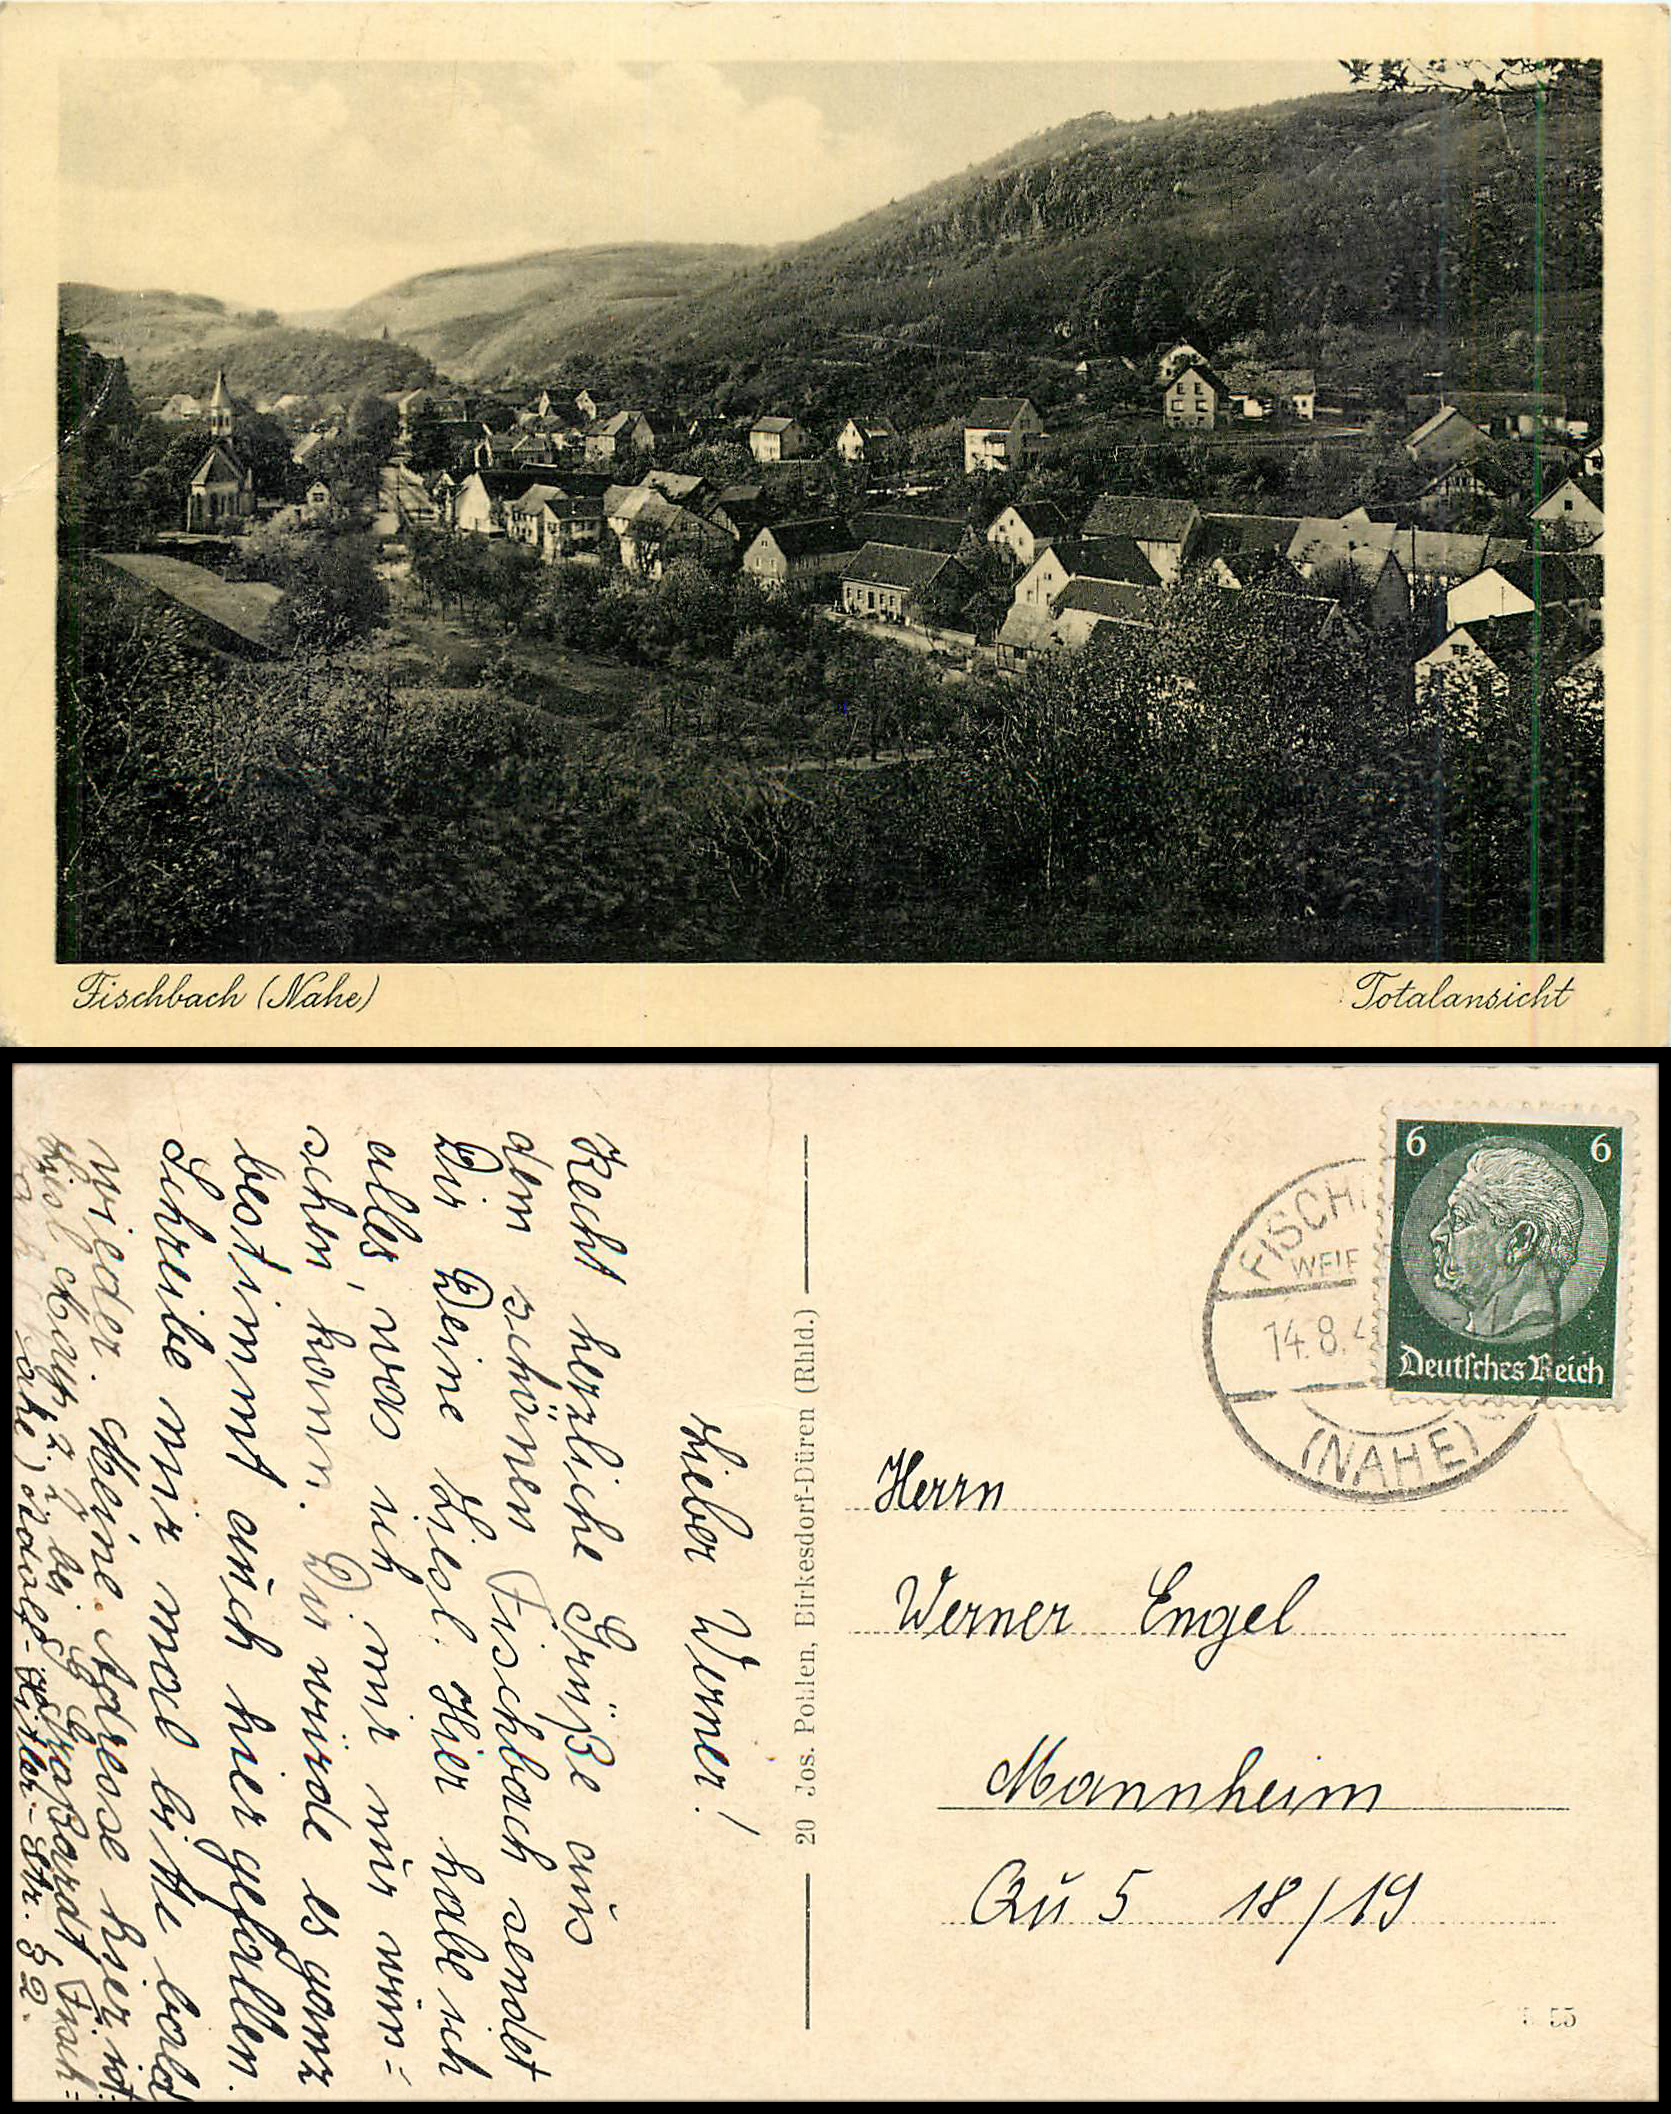 Fischbach (Nahe)
Totalansicht
Lieber Werner!
Recht herzliche Grüße aus
dem schönen Fischbach sendet
Dir Deine Liesl. Hier habe ich
alles, was ich mir nur wün=
schen kann. Dir würde es ganz
bestimmt auch hier gefallen.
Schreibe mir mal bitte bald
wieder. Meine Adresse hier ist:
Liesl z. Z. bei Straßardt Fisch=
bach (Nahe) Adolf-Hitler-Str. 82.
20 Jos. Pollen, Birkesdorf-Düren (Rhld.)
6 6
Deutsches Reich
FISCH
WEIE
14.8.4
(NAHE)
Herrn
Werner Engel
Mannheim
Qu 5 18/19
55